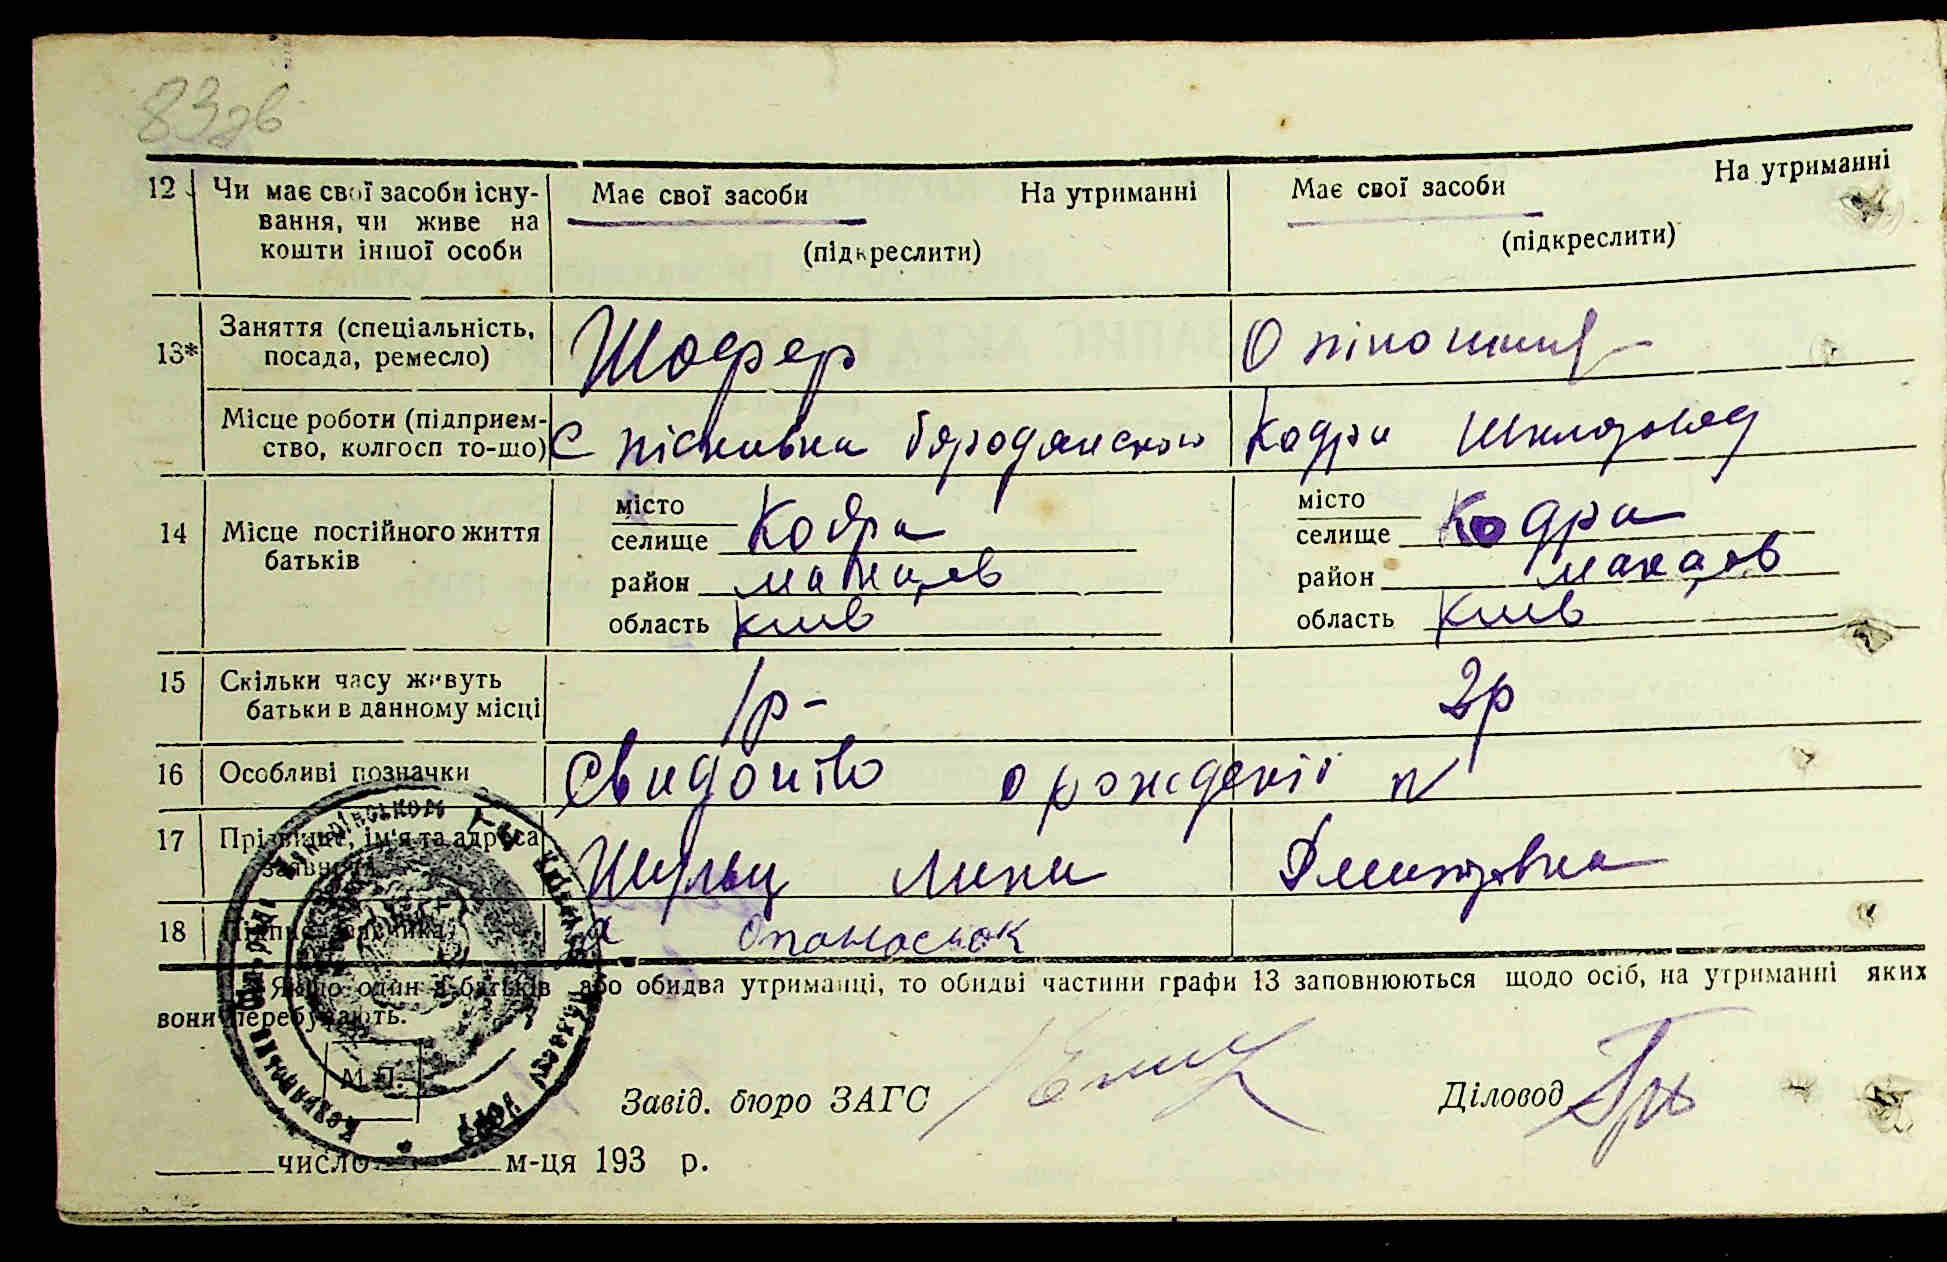 83зв
12 Чи має свої засоби існу- Має свої засоби На утриманні Має свої засоби На утриманні
вання, чи живе на
кошти іншої особи (підкреслити) (підкреслити)
13* Заняття (спеціальність,
посада, ремесло) Шофер
Місце роботи (підприєм-
ство, колгосп то-що) С пісківка бородянского Кодра
14 Місце постійного життя
батьків
місто
селище Кодра
район макаров
область київ
місто
селище Кодра
район макаров
область київ
15 Скільки часу живуть
батьки в данному місці 1р- 2р
16 Особливі позначки о рожденії №
17 Прізвище, ім'я та адреса
заявника Шульц
18 Підпис заявника Опанасюк
Якщо один з батьків або обидва утриманці, то обидві частини графи 13 заповнюються щодо осіб, на утриманні яких
вони перебувають.
М.П.
Завід. бюро ЗАГС Діловод
число м-ця 193 р.